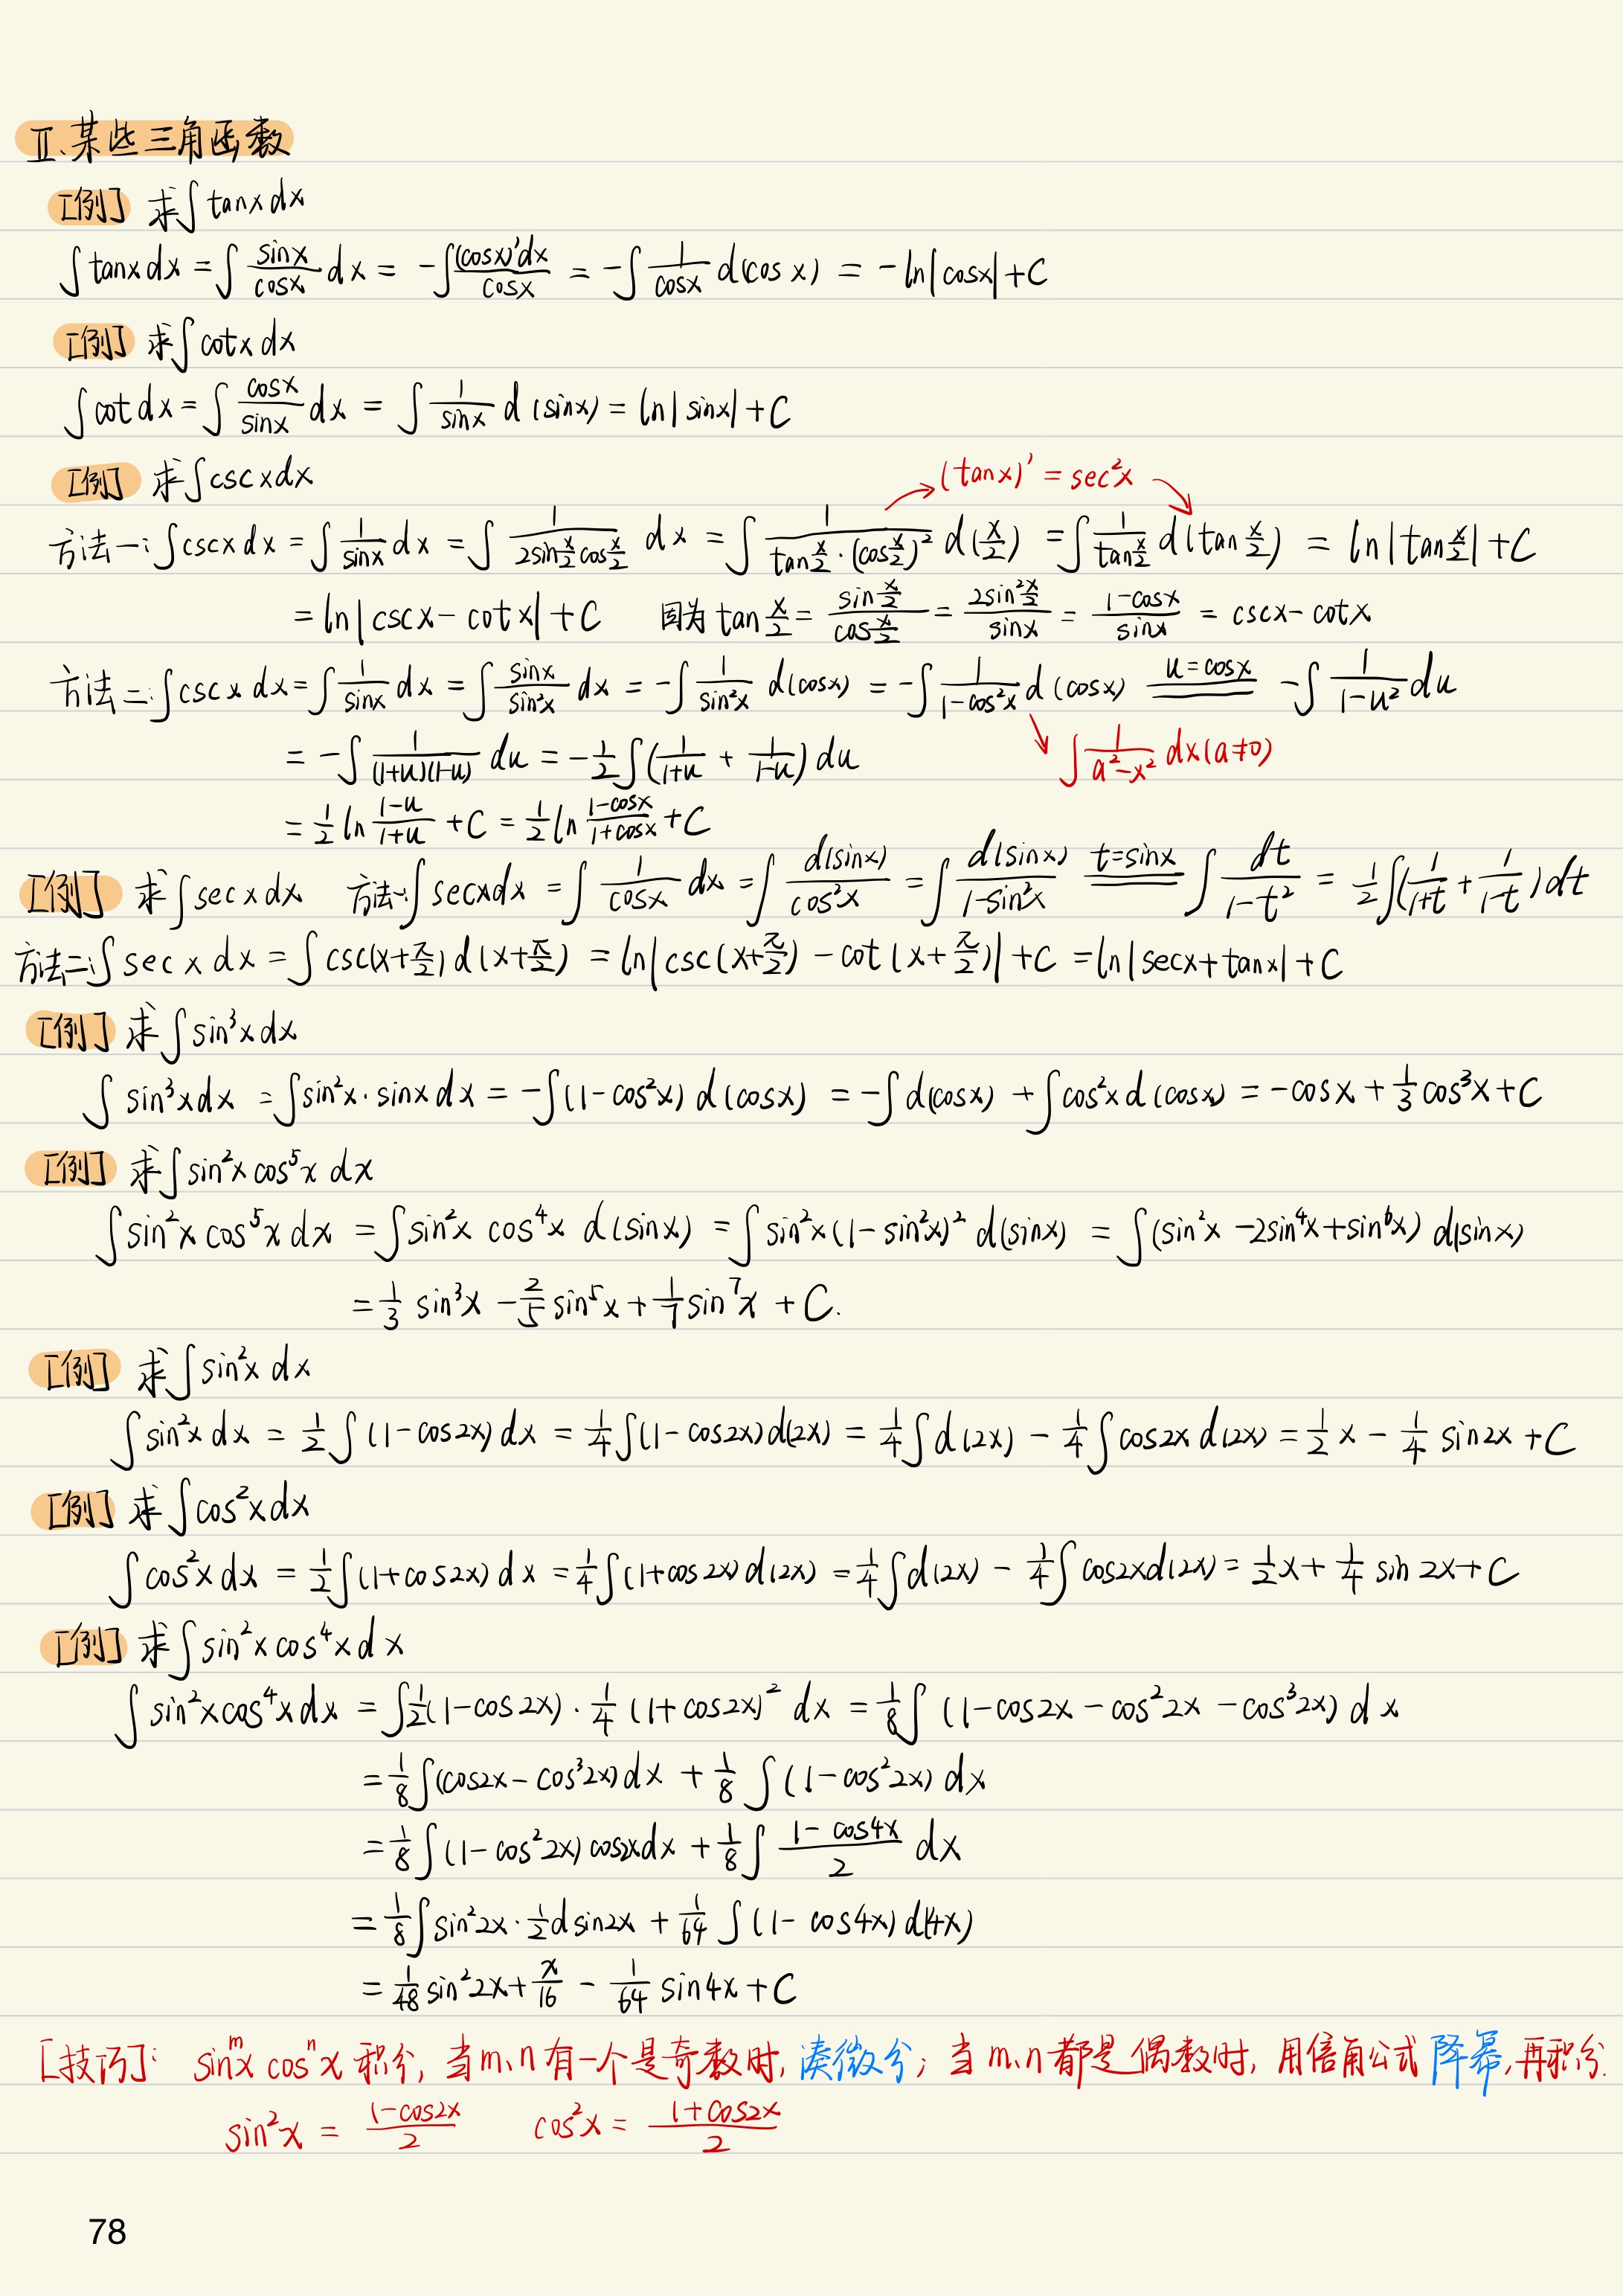 Ⅱ.某些三角函数
[例] 求∫tanxdx
∫tanxdx = ∫ sinx/cosx dx = -∫ (cosx)'dx/cosx = -∫ 1/cosx d(cosx) = -ln|cosx|+C
[例] 求∫cotxdx
∫cotdx = ∫ cosx/sinx dx = ∫ 1/sinx d(sinx) = ln|sinx|+C
[例] 求∫cscxdx
(tanx)' = sec²x
方法一: ∫cscxdx = ∫ 1/sinx dx = ∫ 1/(2sin x/2 cos x/2) dx = ∫ 1/(tan x/2 · (cos x/2)²) d(x/2) = ∫ 1/(tan x/2) d(tan x/2) = ln|tan x/2|+C
= ln|cscx-cotx|+C 因为 tan x/2 = (sin x/2)/(cos x/2) = (2sin² x/2)/sinx = (1-cosx)/sinx = cscx-cotx
方法二: ∫cscxdx = ∫ 1/sinx dx = ∫ sinx/sin²x dx = -∫ 1/sin²x d(cosx) = -∫ 1/(1-cos²x) d(cosx) u=cosx -∫ 1/(1-u²) du
= -∫ 1/((1+u)(1-u)) du = -1/2 ∫(1/(1+u) + 1/(1-u)) du ∫ 1/(a²-x²) dx(a≠0)
= 1/2 ln (1-u)/(1+u) +C = 1/2 ln (1-cosx)/(1+cosx) +C
[例] 求∫secxdx 方法一: ∫secxdx = ∫ 1/cosx dx = ∫ d(sinx)/cos²x = ∫ d(sinx)/(1-sin²x) t=sinx ∫ dt/(1-t²) = 1/2 ∫(1/(1+t) + 1/(1-t))dt
方法二: ∫secxdx = ∫csc(x+π/2)d(x+π/2) = ln|csc(x+π/2) - cot(x+π/2)|+C = ln|secx+tanx|+C
[例] 求∫sin³xdx
∫sin³xdx = ∫sin²x·sinxdx = -∫(1-cos²x)d(cosx) = -∫d(cosx) + ∫cos²xd(cosx) = -cosx + 1/3 cos³x+C
[例] 求∫sin²xcos⁵xdx
∫sin²xcos⁵xdx = ∫sin²x cos⁴x d(sinx) = ∫sin²x(1-sin²x)² d(sinx) = ∫(sin²x-2sin⁴x+sin⁶x) d(sinx)
= 1/3 sin³x - 2/5 sin⁵x + 1/7 sin⁷x + C.
[例] 求∫sin²xdx
∫sin²xdx = 1/2 ∫(1-cos2x)dx = 1/4 ∫(1-cos2x)d(2x) = 1/4 ∫d(2x) - 1/4 ∫cos2xd(2x) = 1/2 x - 1/4 sin2x+C
[例] 求∫cos²xdx
∫cos²xdx = 1/2 ∫(1+cos2x)dx = 1/4 ∫(1+cos2x)d(2x) = 1/4 ∫d(2x) - 1/4 ∫cos2xd(2x) = 1/2 x + 1/4 sin2x+C
[例] 求∫sin²xcos⁴xdx
∫sin²xcos⁴xdx = ∫1/2(1-cos2x)·1/4(1+cos2x)² dx = 1/8 ∫(1-cos2x-cos²2x-cos³2x)dx
= 1/8 ∫(cos2x-cos³2x)dx + 1/8 ∫(1-cos²2x)dx
= 1/8 ∫(1-cos²2x)cos2xdx + 1/8 ∫ (1-cos4x)/2 dx
= 1/8 ∫sin²2x·1/2 dsin2x + 1/64 ∫(1-cos4x)d(4x)
= 1/48 sin²2x + x/16 - 1/64 sin4x+C
[技巧]: sinᵐx cosⁿx 积分, 当m、n有一个是奇数时, 凑微分; 当m、n都是偶数时, 用倍角公式降幂, 再积分.
sin²x = (1-cos2x)/2 cos²x = (1+cos2x)/2
78